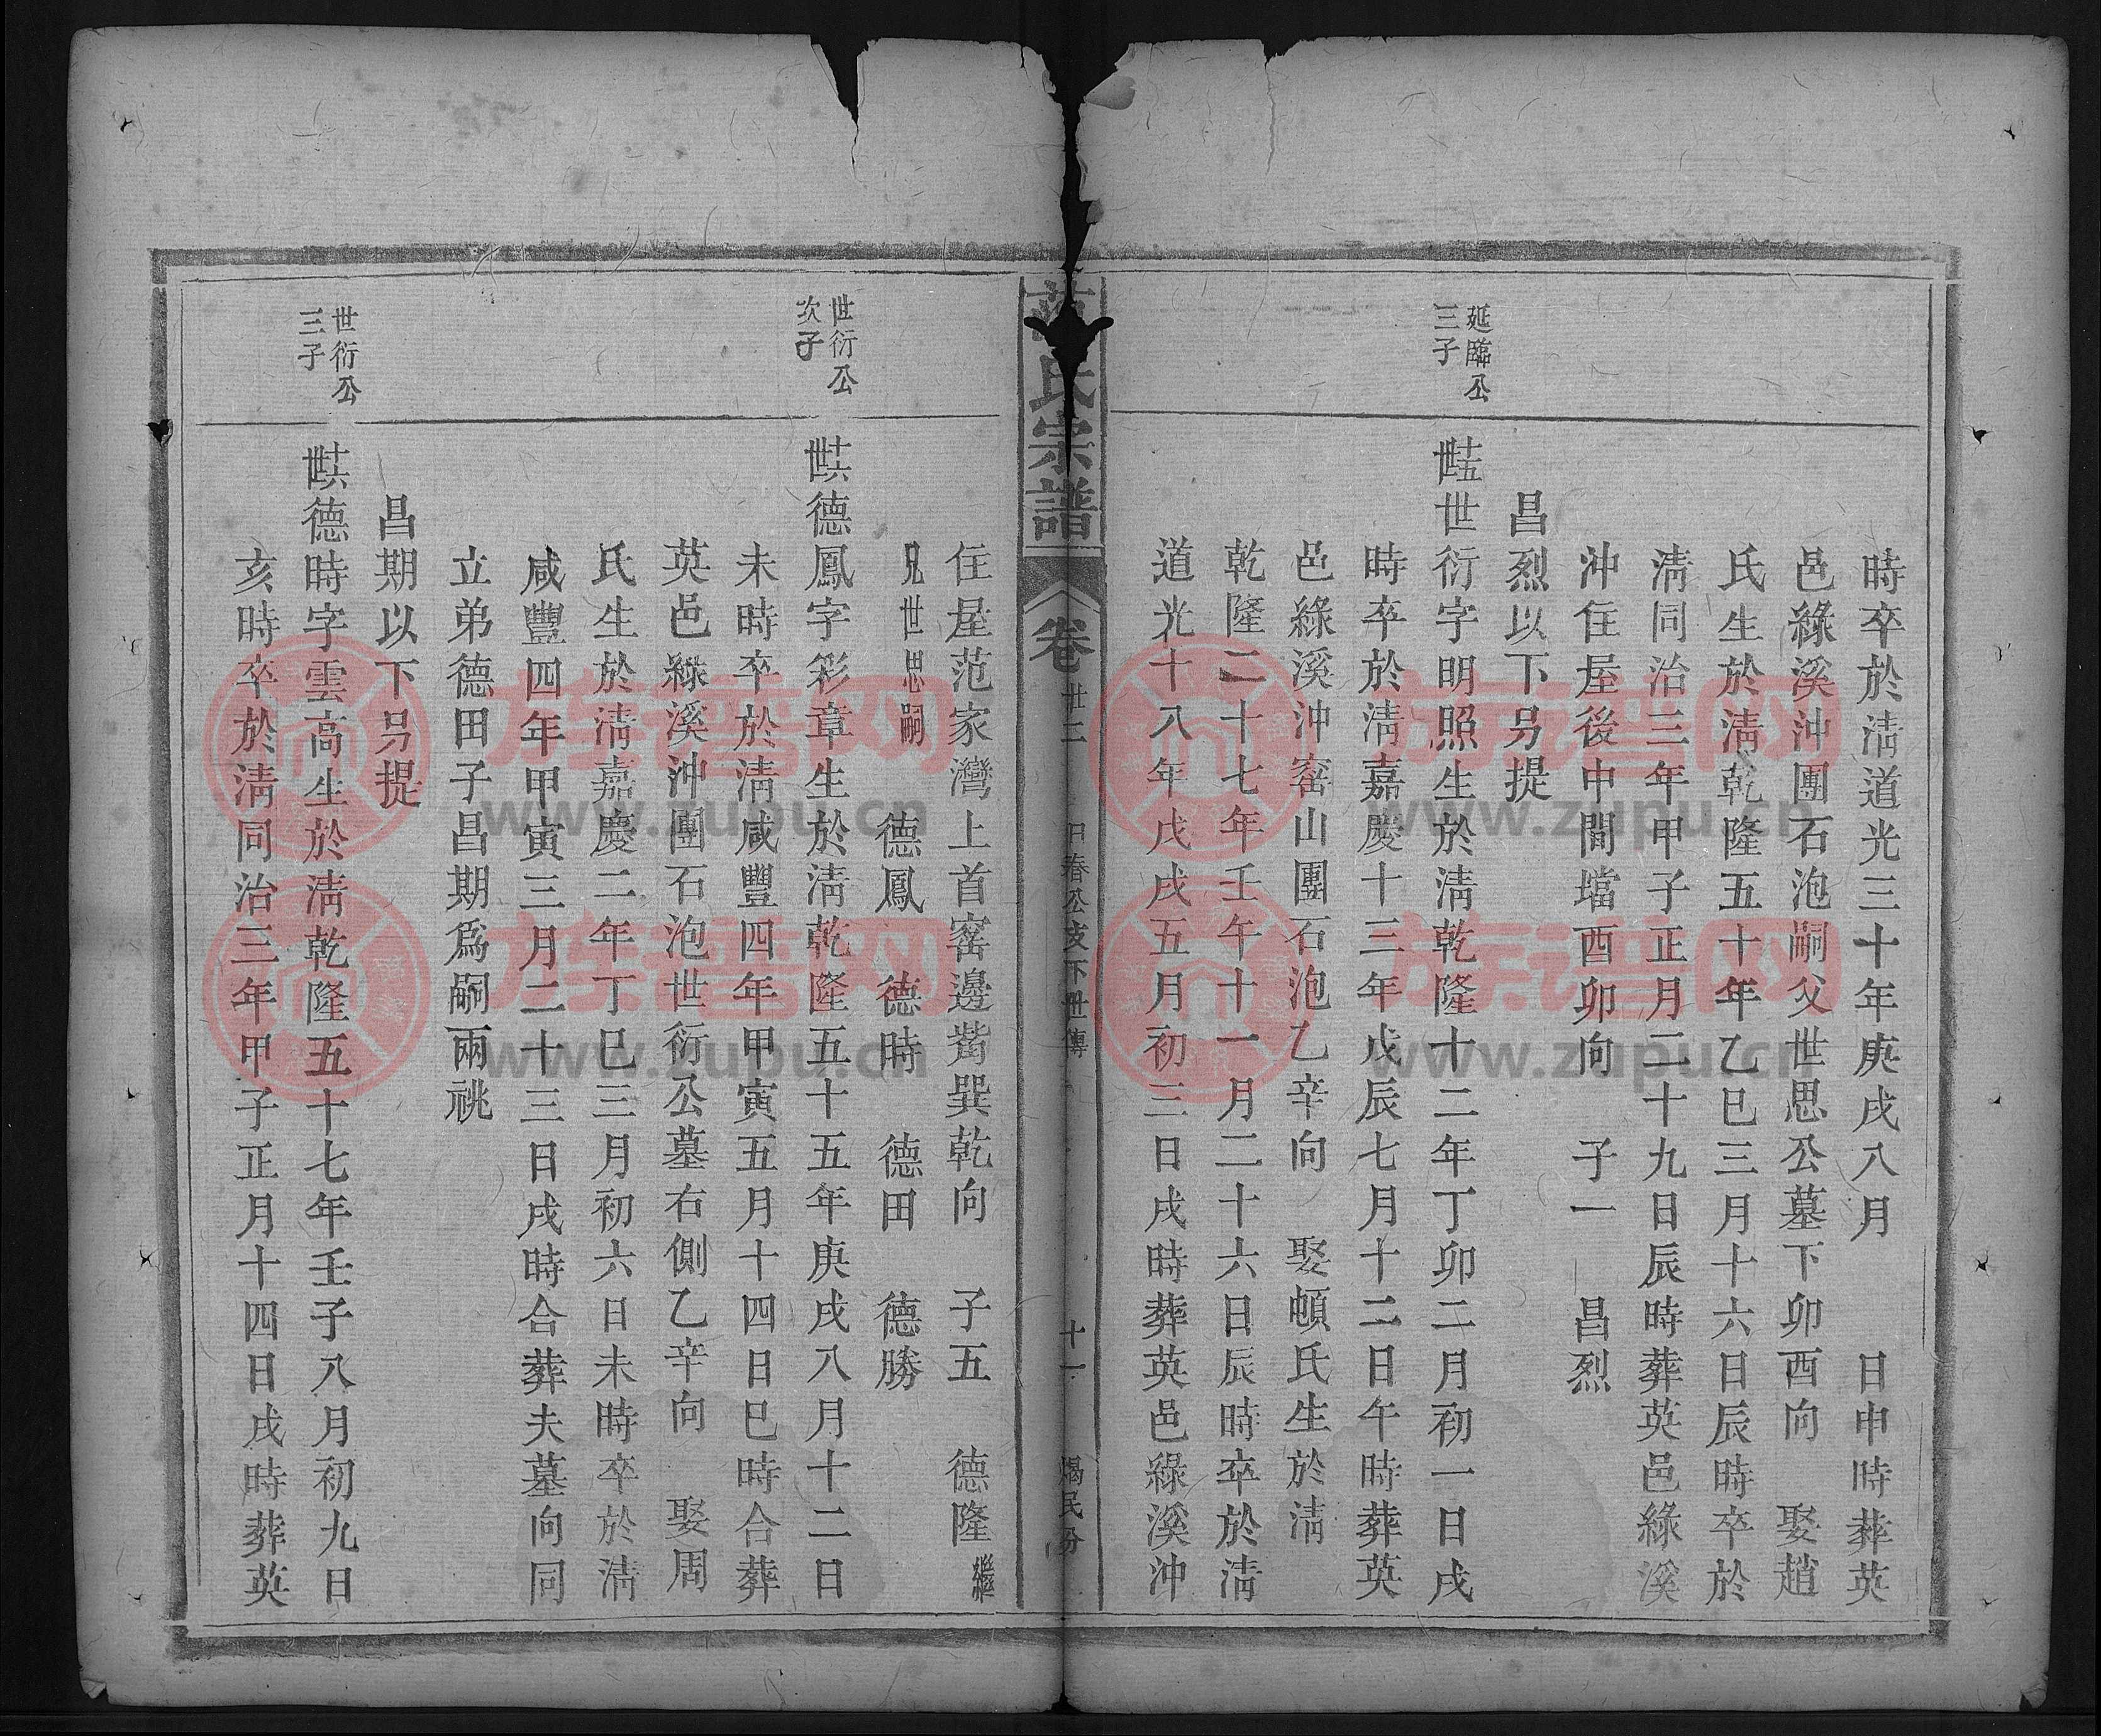 時卒於淸道光三十年庚戌八月　日申時葬英
邑綠溪沖團石泡嗣父世思公墓下卯酉向　娶趙
氏生於淸乾隆五十年乙巳三月十六日辰時卒於
淸同治三年甲子正月二十九日辰時葬英邑綠溪
沖住屋後中間壋酉卯向　子一　昌烈
昌烈以下另提
延臨公
三子
十五世世衍字明照生於淸乾隆十二年丁卯二月初一日戌
時卒於淸嘉慶十三年戊辰七月十二日午時葬英
邑綠溪沖窰山團石泡乙辛向　娶頓氏生於淸
乾隆二十七年壬午十一月二十六日辰時卒於淸
道光十八年戊戌五月初三日戌時葬英邑綠溪沖
范氏宗譜　卷廿二　日春公支下世傳　十一
住屋范家灣上首窰邊巽乾向　子五　德隆繼
兄世思嗣　德鳳　德時　德田　德勝
世衍公
次子
十六世德鳳字彩章生於淸乾隆五十五年庚戌八月十二日
未時卒於淸咸豐四年甲寅五月十四日巳時合葬
英邑綠溪沖團石泡世衍公墓右側乙辛向　娶周
氏生於淸嘉慶二年丁巳三月初六日未時卒於淸
咸豐四年甲寅三月二十三日戌時合葬夫墓向同
立弟德田子昌期爲嗣兩祧
昌期以下另提
世衍公
三子
十六世德時字雲高生於淸乾隆五十七年壬子八月初九日
亥時卒於淸同治三年甲子正月十四日戌時葬英
族譜网
www.zupu.cn
族譜网
www.zupu.cn
族譜网
www.zupu.cn
族譜网
www.zupu.cn